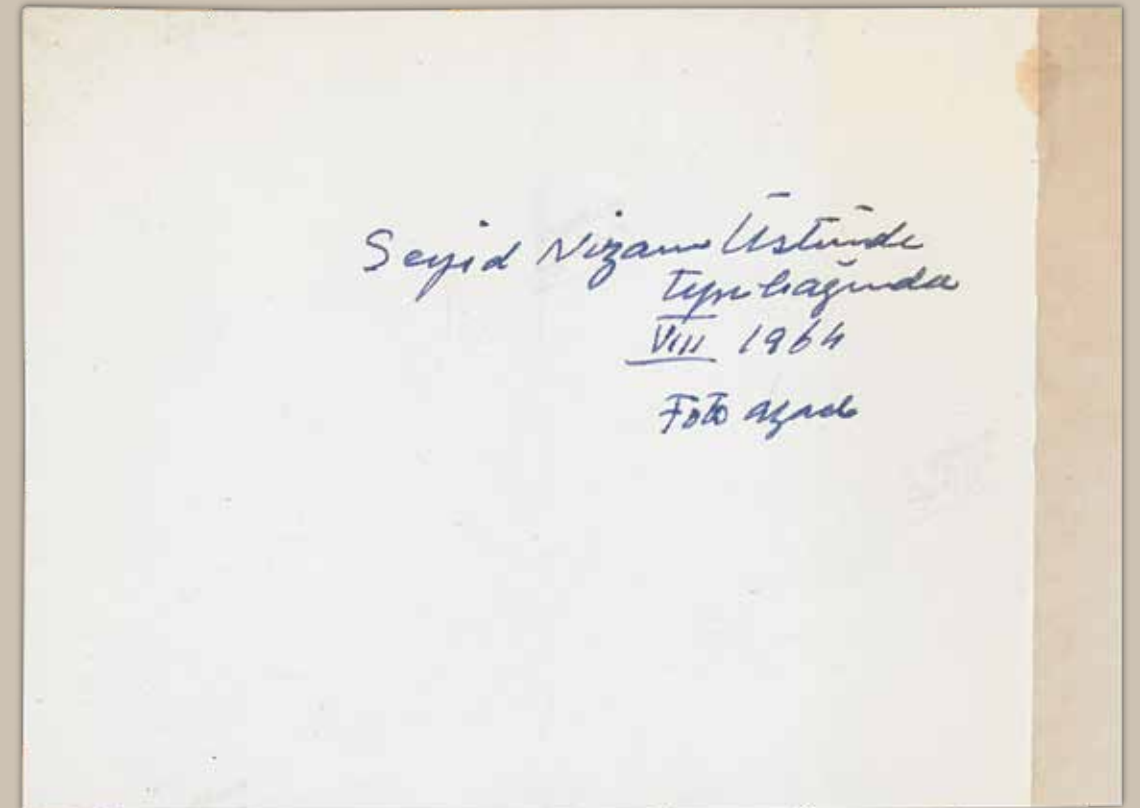 Seyid Nizam Üstünde
tepebağında
VIII 1964
Foto